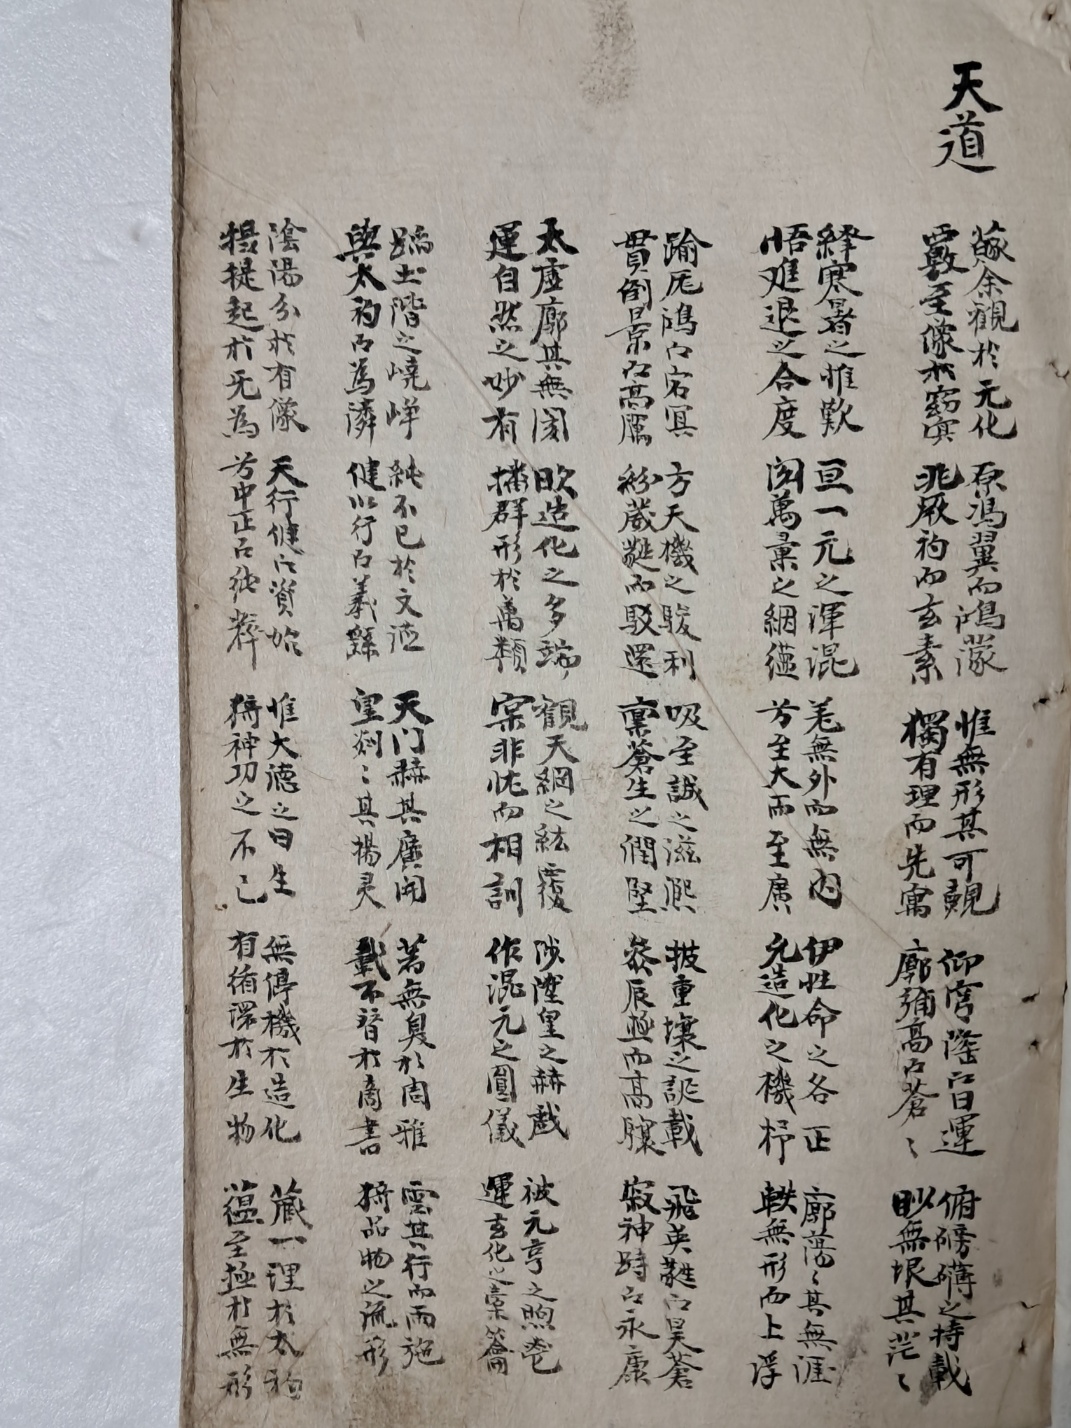 天道
緊余觀於元化
覈至像於窈冥
原馮翼而鴻濛
兆厥初而玄素
惟無形其可覩
獨有理而先寓
仰穹隆以日運
廓彌高以蒼〻
俯磅礴之持載
眇無垠其茫〻
繹寒暑之推歎
悟难退之合度
亘一元之渾混
囿萬彙之絪縕
羌無外而無內
方至大而至廣
伊性命之各正
允造化之機杼
廓蕩〻其無涯
軼無形而上浮
踰厖鴻以宕冥
貫倒景以高厲
方天機之駿利
紛葳蕤而駁還
吸至誠之滋熙
禀蒼生之潤堅
披重壤之誕載
叅辰極而高驤
飛英蕤以昊蒼
寂神時以永康
太虛廓其無閡
運自然之妙有
欥造化之多端
播群形於萬類
觀天網之紘覆
寀非忱而相訓
陟陞皇之赫戲
作混元之圓儀
被元亨之煦卷
運玄化之橐籥
蹈土階之嶢崢
與太初而為隣
純不已於文德
健以行而羲繇
天门赫其廣開
皇剡〻其揚灵
若無臭於周雅
載不替於商書
雲其行而雨施
將品物之流形
陰陽分於有像
提挺起於无為
天行健以資始
方中正以純粹
惟大德之曰生
將神功之不已
無停機於造化
有循環於生物
藏一理於太初
蘊至極於無形